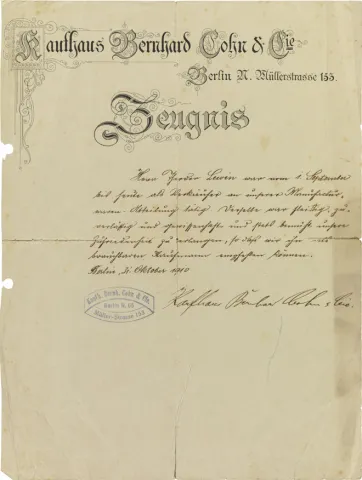 Kaufhaus Bernhard Cohn & Cie
Berlin N. Müllerstrasse 153.
Zeugnis
Herr Theodor Lewin war vom 1. September
bis heute als Verkäufer in unserer Manufactur-
waren Abteilung tätig. Derselbe war fleißig, zu-
verlässig und gewissenhaft und stets bemüht unsere
Zufriedenheit zu erlangen, so daß wir ihn als
brauchbaren Kaufmann empfehlen können.
Berlin, d. Oktober 1910
Kaufh. Bernh. Cohn & Cie.
Berlin N. 65
Müller-Strasse 153
Kaufhaus Bernhard Cohn & Cie.